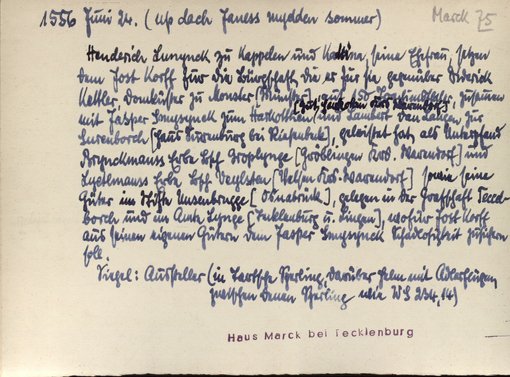 1556 Juni 24. (up dach Janess mydden sommer)
Marck 75
Henderich Lunynck zu Kappelen und seine Ehefrau, setzen
dem Jost Korff für die Bürgschaft, die er für sie gegenüber Diderick
Kettler, Domküster zu Monster [Münster], auf 150, zusammen
mit Jasper Smysynck zum Harkotthen [Gut Harkotten Krs. Warendorf] und Lambert van Langen zur
Surenborch [Haus Surenburg bei Riesenbeck], geleistet hat, als Unterpfand
Brynckmanns Erbe, Ksp. Groplynge [Gröblingen Krs. Warendorf] und
Lyetelmanns Erbe, Ksp. [Velsen Krs. Warendorf] sowie seine
Güter im Stifte Ossenbrugge [Osnabrück], gelegen in der Grafschaft Teccle-
borch und im Amte Lynge [Tecklenburg u. Lingen], wofür Jost Korff
aus seinen eigenen Gütern dem Jasper Smysynck Schadlosigkeit zusichern
soll.
Siegel: Aussteller (in Tartsche Sperling, darüber Helm mit Adlerflügen
zwischen denen Sperling wie WS 234,14)
Haus Marck bei Tecklenburg